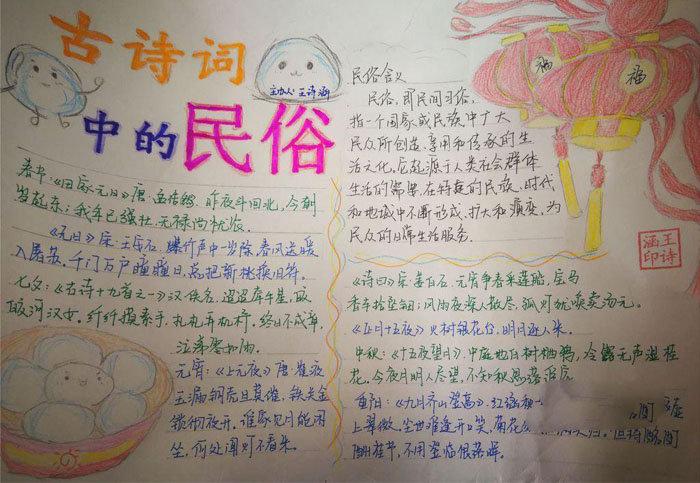 古诗词
中的民俗
主办人:王诗涵
春节:《田家元日》唐·孟浩然 昨夜斗回北,今朝
岁起东;我年已强壮,无禄尚忧农。
《元日》宋·王安石 爆竹声中一岁除,春风送暖
入屠苏。千门万户曈曈日,总把新桃换旧符。
七夕:《古诗十九首之一》汉·佚名 迢迢牵牛星,皎
皎河汉女。纤纤擢素手,札札弄机杼。终日不成章,
泣涕零如雨。
元宵:《上元夜》唐·崔液
玉漏铜壶且莫催,铁关金
锁彻夜开。谁家见月能闲
坐,何处闻灯不看来。
民俗含义
民俗,即民间习俗,
指一个国家或民族中广大
民众所创造、享用和传承的生
活文化,它起源于人类社会群体
生活的需要,在特定的民族、时代
和地域中不断形成、扩大和演变,为
民众的日常生活服务。
福
福
王诗
涵印
《诗曰》宋·姜白石 元宵争看采莲船,宝马
香车拾坠钿;风雨夜深人散尽,孤灯犹唤卖汤元。
《正月十五夜》火树银花合,明月逐人来。
中秋:《十五夜望月》中庭地白树栖鸦,冷露无声湿桂
花,今夜月明人尽望,不知秋思落谁家
重阳:《九月齐山登高》江涵秋
上翠微,尘世难逢开口笑,菊花
酬佳节,不用登临恨落晖。